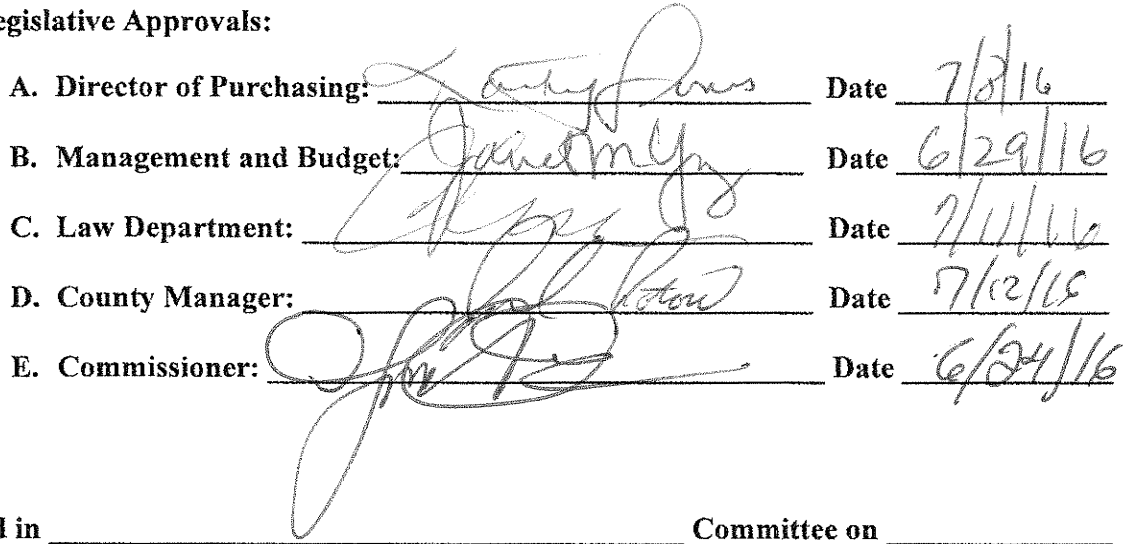 egislative Approvals:
A. Director of Purchasing: Date 7/8/16
B. Management and Budget: Date 6/29/16
C. Law Department: Date 7/11/16
D. County Manager: Date 7/12/16
E. Commissioner: Date 6/24/16
d in Committee on